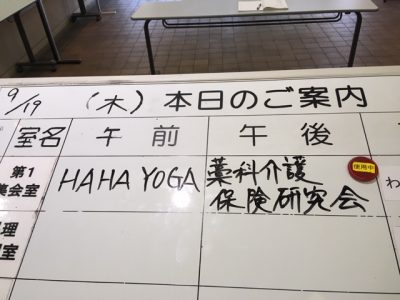 9/19 (木) 本日のご案内
室名 午前 午後
第1
集会室
HAHA YOGA
薬科介護
保険研究会
使用中
わ
理
室